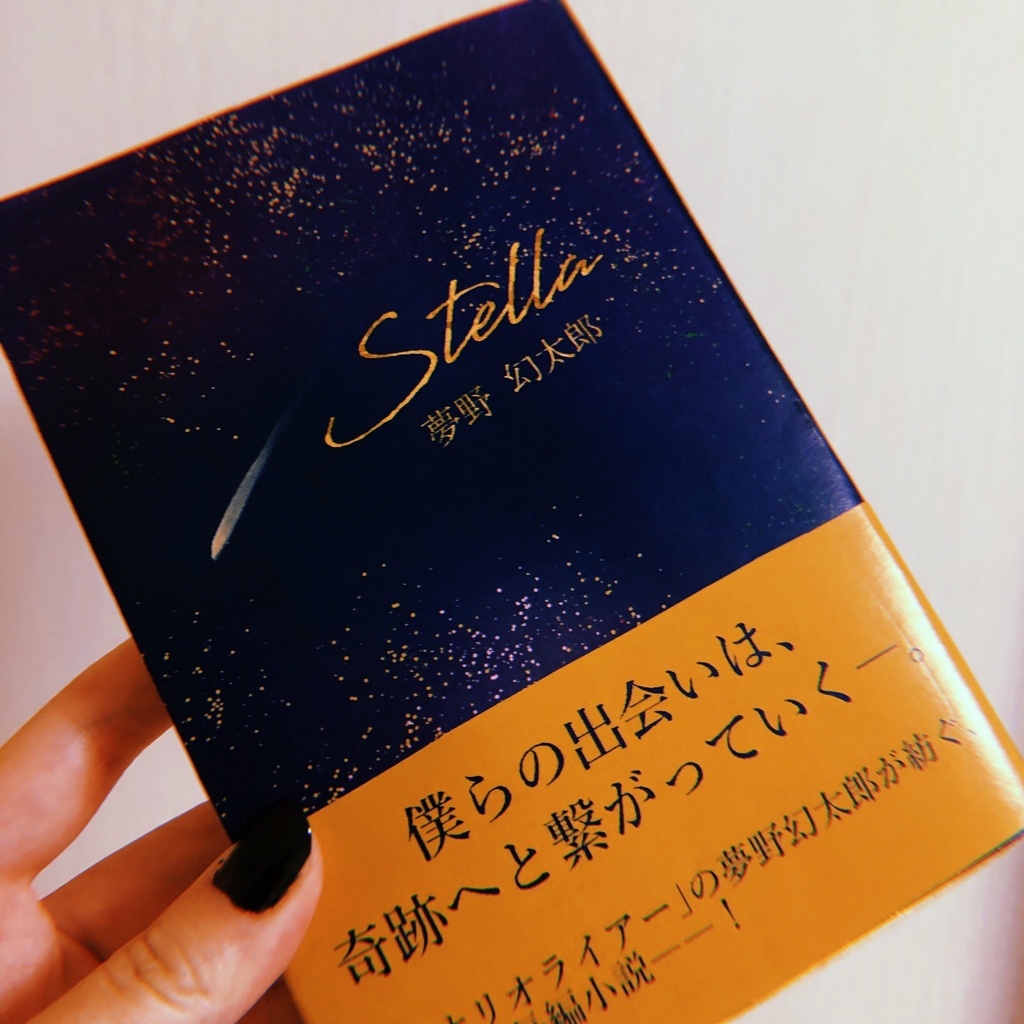 Stella
夢野 幻太郎
僕らの出会いは、
奇跡へと繋がっていく―。
リオライアー」の夢野幻太郎が紡ぐ、
編小説――！